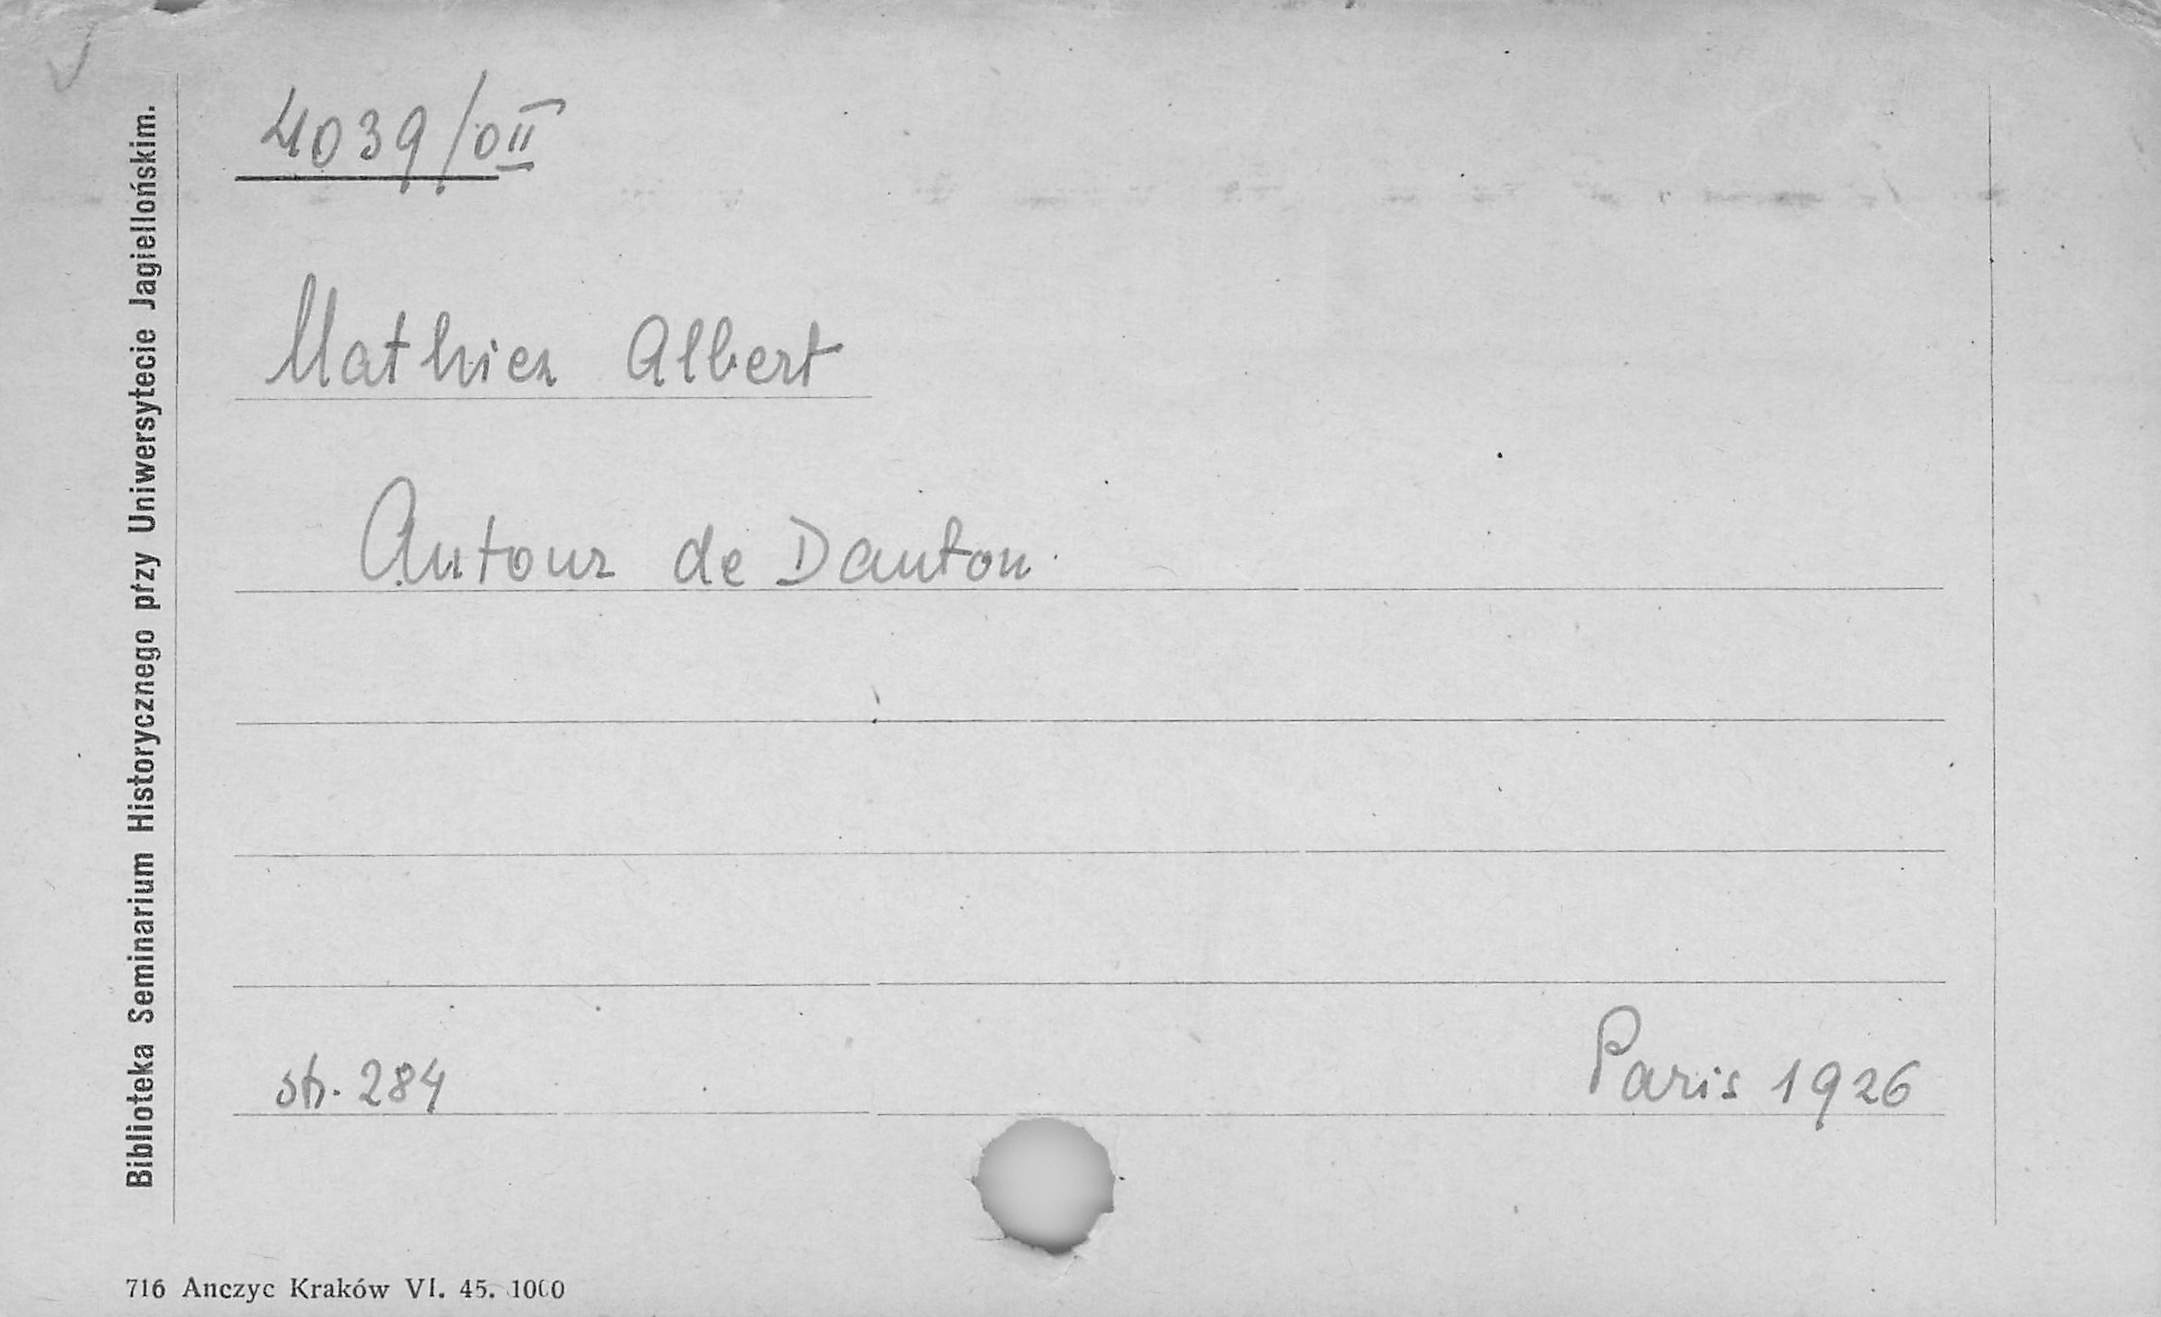 4039/0II
Mathiez Albert
Autour de Danton
str. 284
Paris 1926
Biblioteka Seminarium Historycznego przy Uniwersytecie Jagiellońskim.
716 Anczyc Kraków VI. 45. 1000